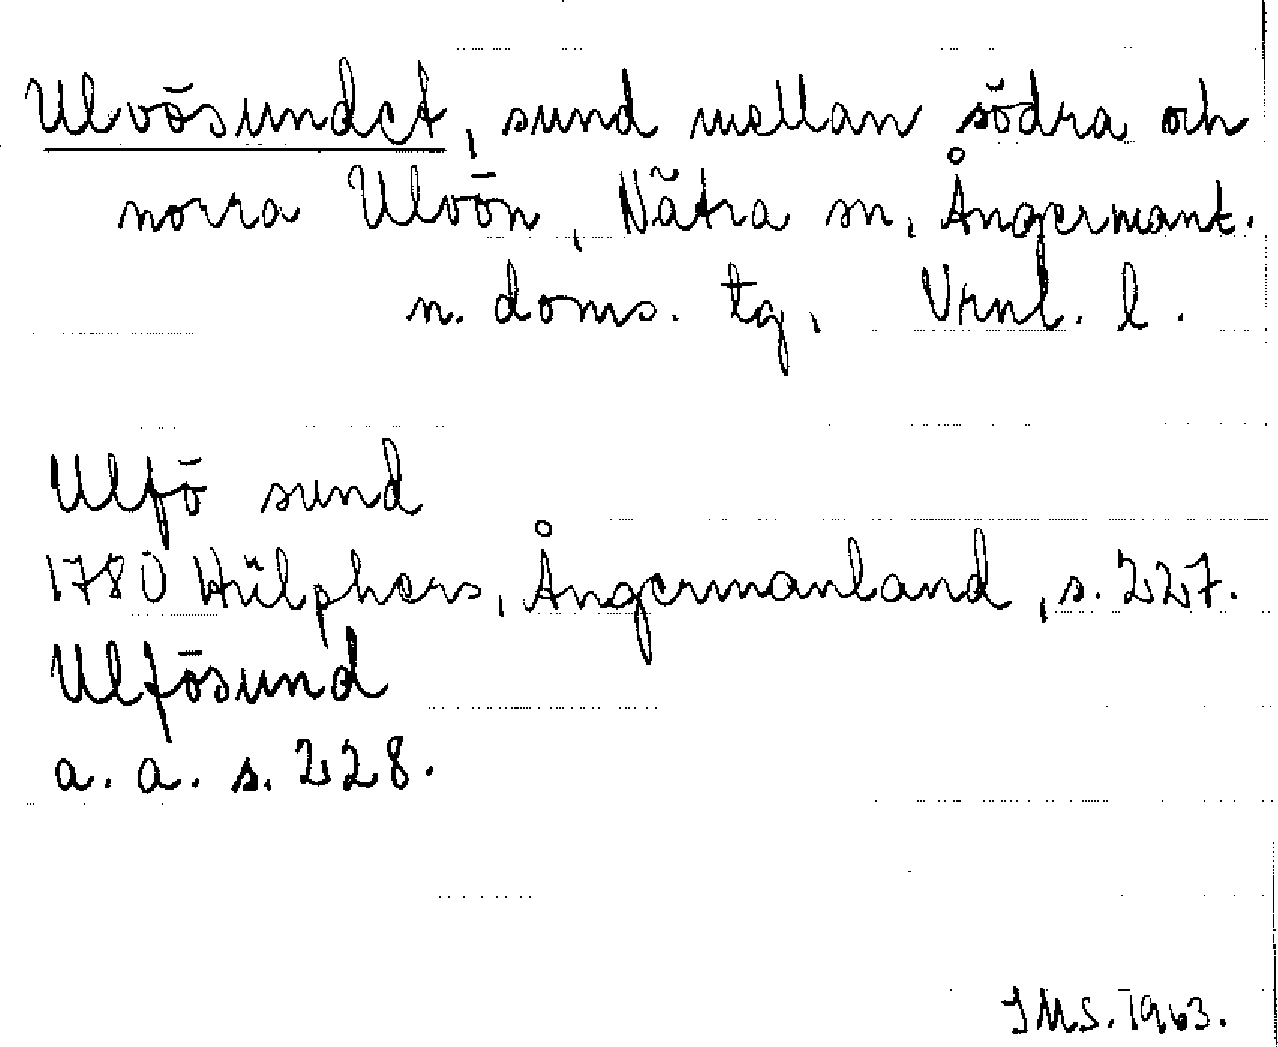 Ulvösundet, sund mellan södra och
norra Ulvön, Nätra sn, Ångermanl.
n. doms. tg, Vrnl. l.
Ulfö sund
1780 Hülphers, Ångermanland, s. 227.
Ulfösund
a. a. s. 228.
IMS. 1963.